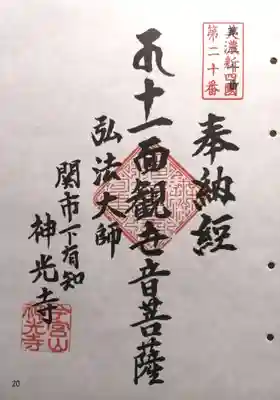 美濃新四国
第二十番
奉納経
十一面観世音菩薩
弘法大師
関市下有知
神光寺
神光寺
20